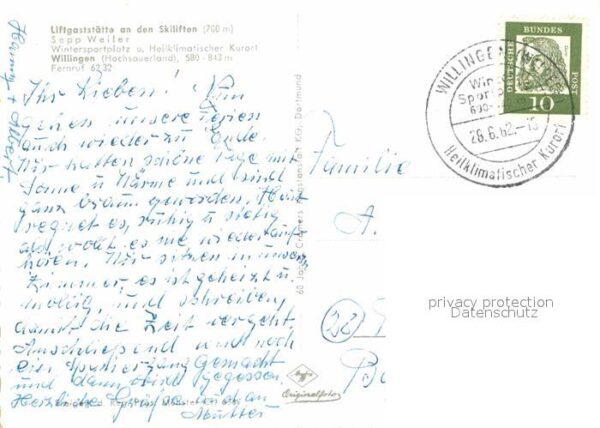 Liftgaststätte an den Skiliften (700 m)
Sepp Weiler
Wintersportplatz u. Heilklimatischer Kurort
Willingen (Hochsauerland), 580 - 843 m
Fernruf 6232
Hanny + Albert
Ihr Lieben! Nun
gehen unsere Ferien
auch wieder zu Ende.
Wir hatten schöne Tage mit
Sonne u Wärme und sind
ganz braun geworden. Heut
regnet es, ruhig u stetig
als wollt es nie wieder auf
hören. Wir sitzen in unserm
Zimmer, es ist geheizt u.
mollig, und schreiben
damit die Zeit vergeht.
Anschließend wird noch
ein Spaziergang gemacht
und dann gegessen.
Herzliche Grüße auch an
Mutter
60 Jahre Cramers Kunstanstalt KG, Dortmund
Familie
A.
(22)
DEUTSCHE BUNDESPOST
10
WILLINGEN
28.6.62.-15
Heilklimatischer Kurort
privacy protection
Datenschutz
Agfa
Originalfoto